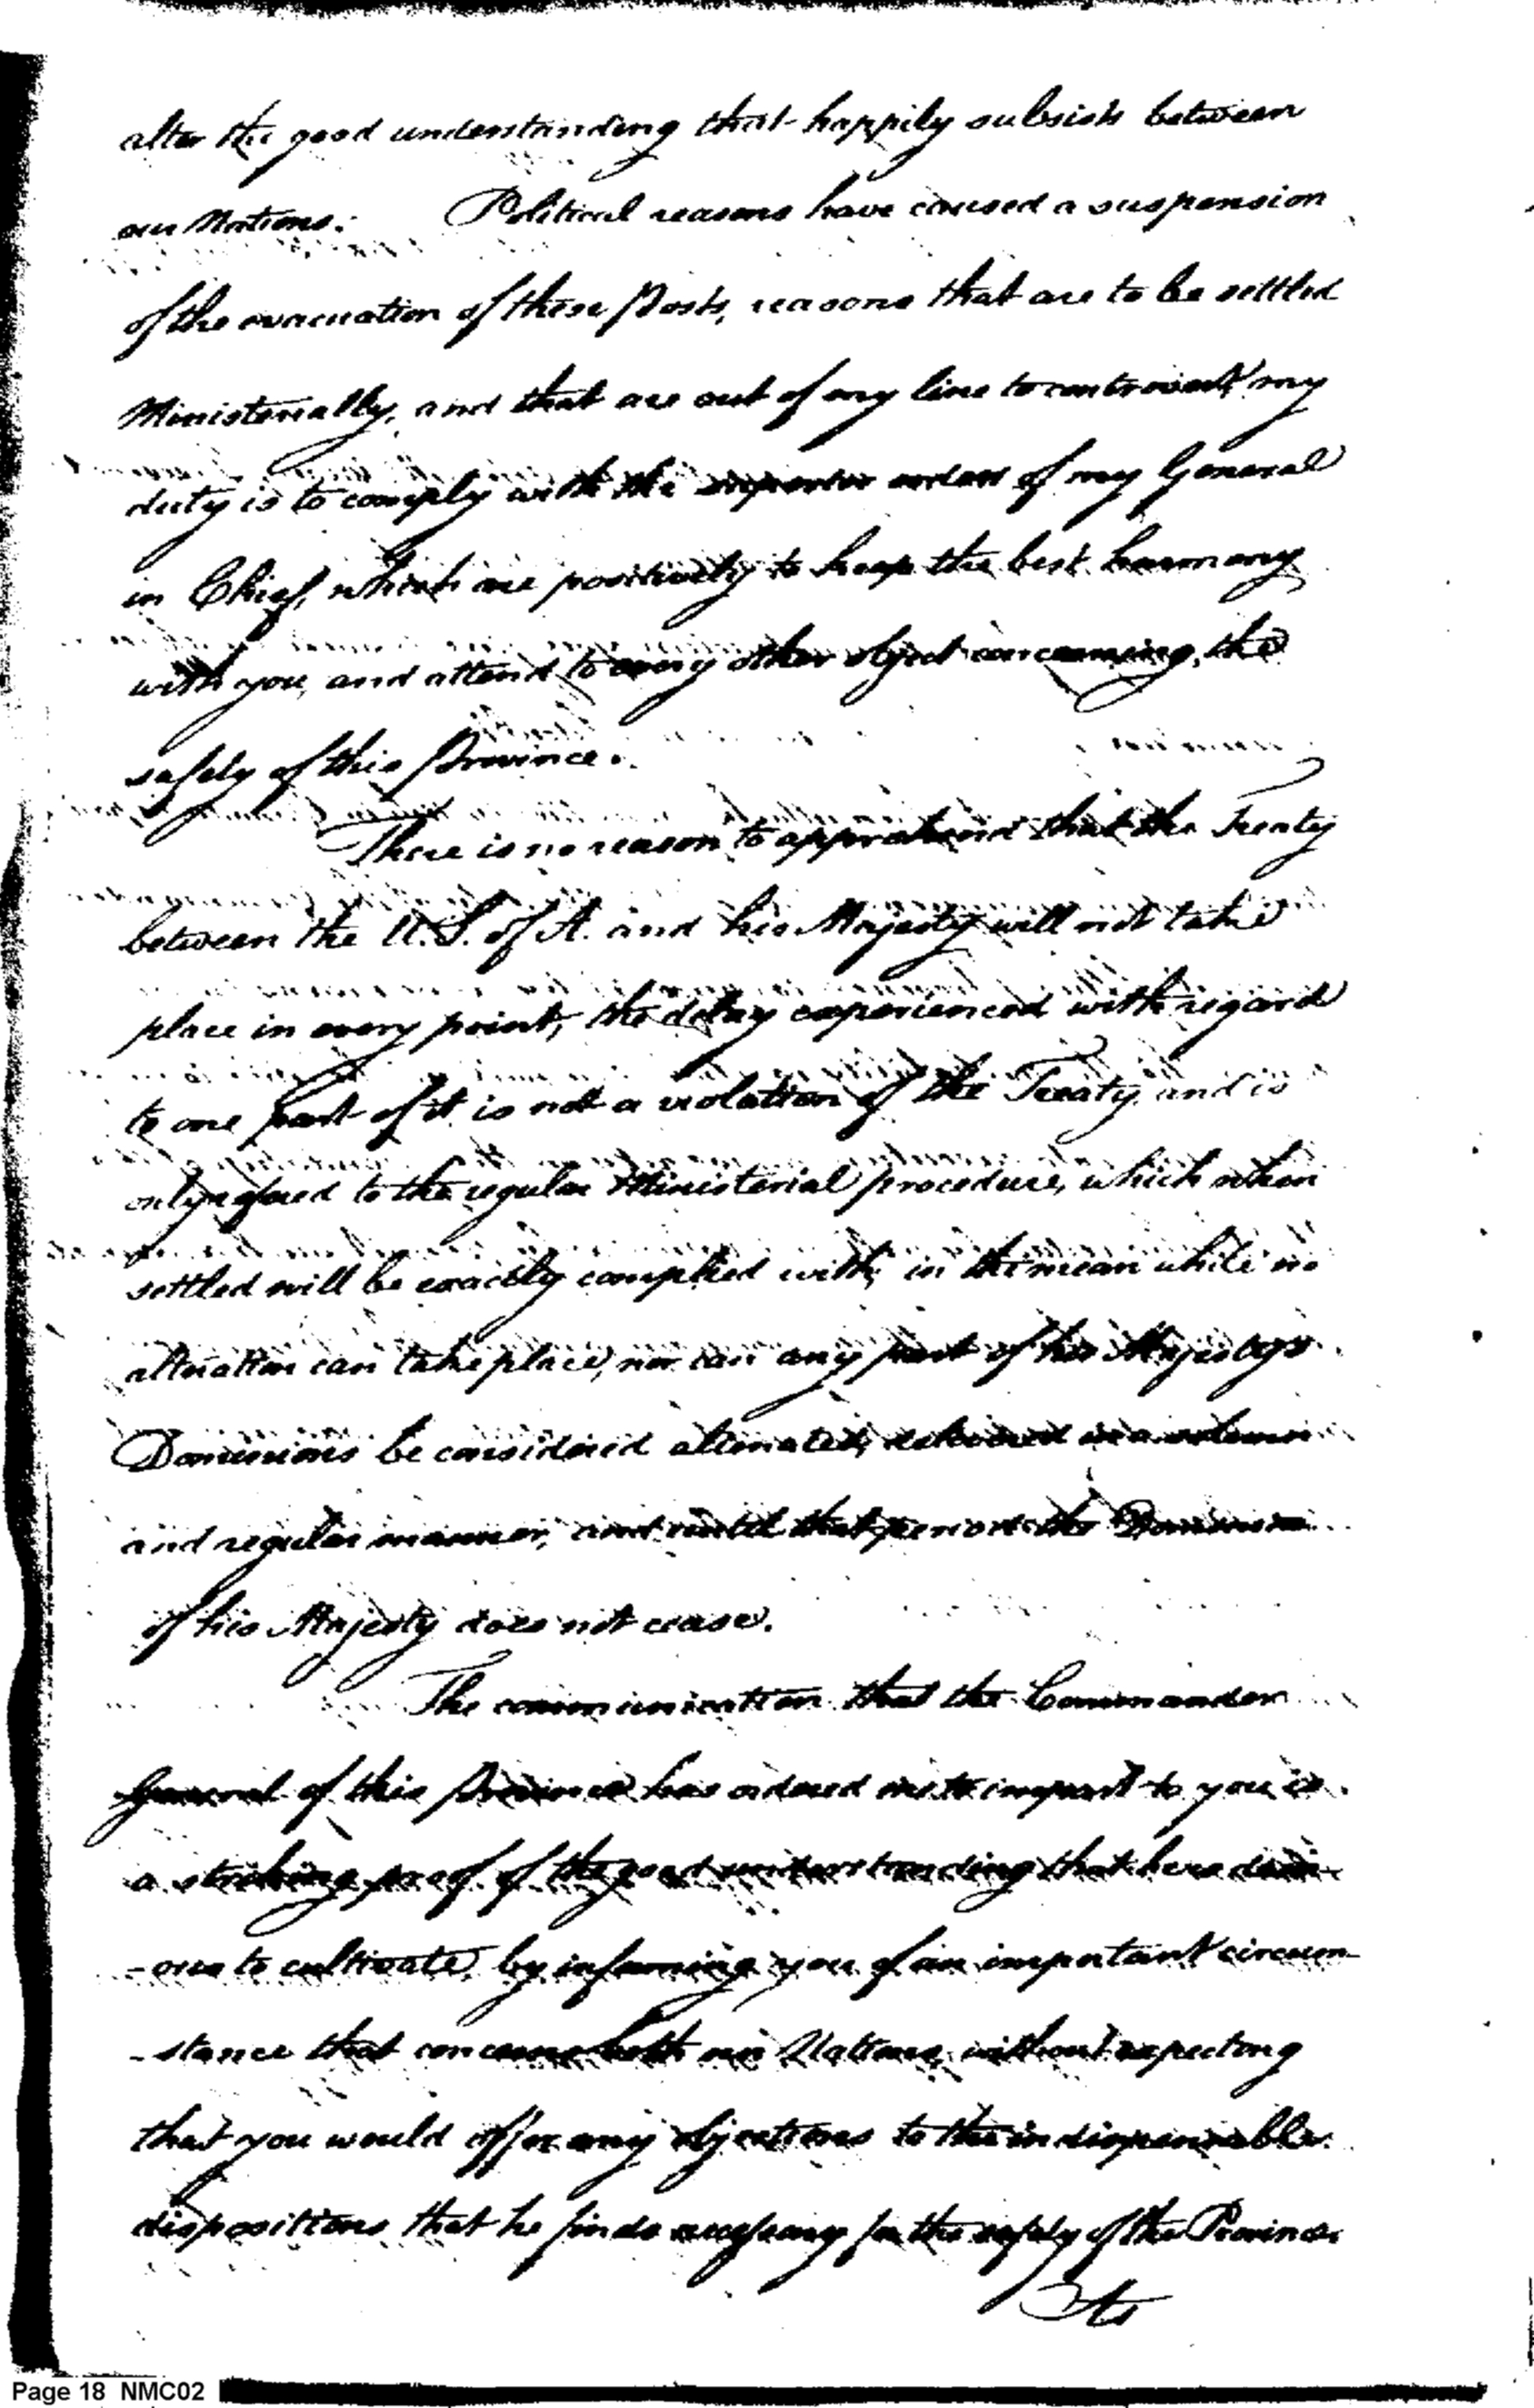 alter the good understanding that happily subsists between
our Nations. Political reasons have caused a suspension
of the evacuation of these Posts, reasons that are to be settled
Ministerially, and that are out of my line to controvert, my
duty is to comply with the superior orders of my General
in Chief, which are positively to keep the best harmony
with you, and attend to every other object concerning, the
safety of this Province.
There is no reason to apprehend that the Treaty
between the U.S. of A. and his Majesty will not take
place in every point, the delay experienced with regard
to one part of it is not a violation of the Treaty and is
only refered to the regular Ministerial procedure, which when
settled will be exactly complied with, in the mean while no
alteration can take place, nor can any part of his Majestys
Dominions be considered alienated, delivered in a solemn
and regular manner, and until that period the Dominion
of his Majesty does not cease.
The communication that the Commander
General of this Province has ordered me to impart to you is
a striking proof of the good understanding that he is desir-
-ous to cultivate, by informing you of an important circum-
-stance that concerns both our Nations, without expecting
that you would offer any objections to the indispensable
dispositions that he finds necessary for the safety of the Province.
Its
Page 18 NMC02